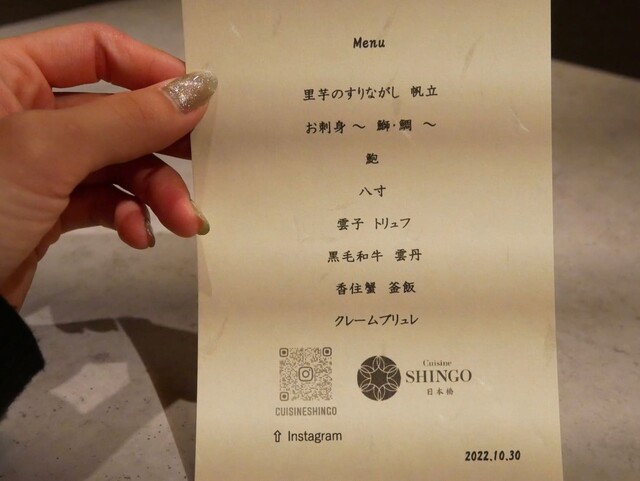 Menu
里芋のすりながし 帆立
お刺身 ～ 鰤・鯛 ～
鮑
八寸
雲子 トリュフ
黒毛和牛 雲丹
香住蟹 釜飯
クレームブリュレ
CUISINESHINGO
⇧ Instagram
Cuisine
SHINGO
日本橋
2022.10.30